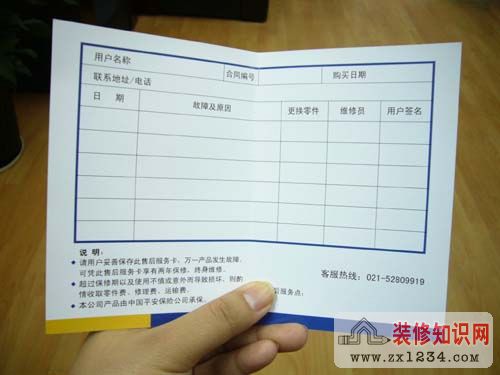 用户名称 合同编号 购买日期
联系地址/电话
日 期 故障及原因 更换零件 维修员 用户签名
说 明：
◆ 请用户妥善保存此售后服务卡，万一产品发生故障，
可凭此售后服务卡享有两年保修，终身维修。
◆ 超过保修期以及使用不慎或意外而导致损坏，则酌
情收取零件费、修理费、运输费。
◆ 本公司产品由中国平安保险公司承保。
客服热线：021-52809919
服务点：
装修知识网
www.zx1234.com